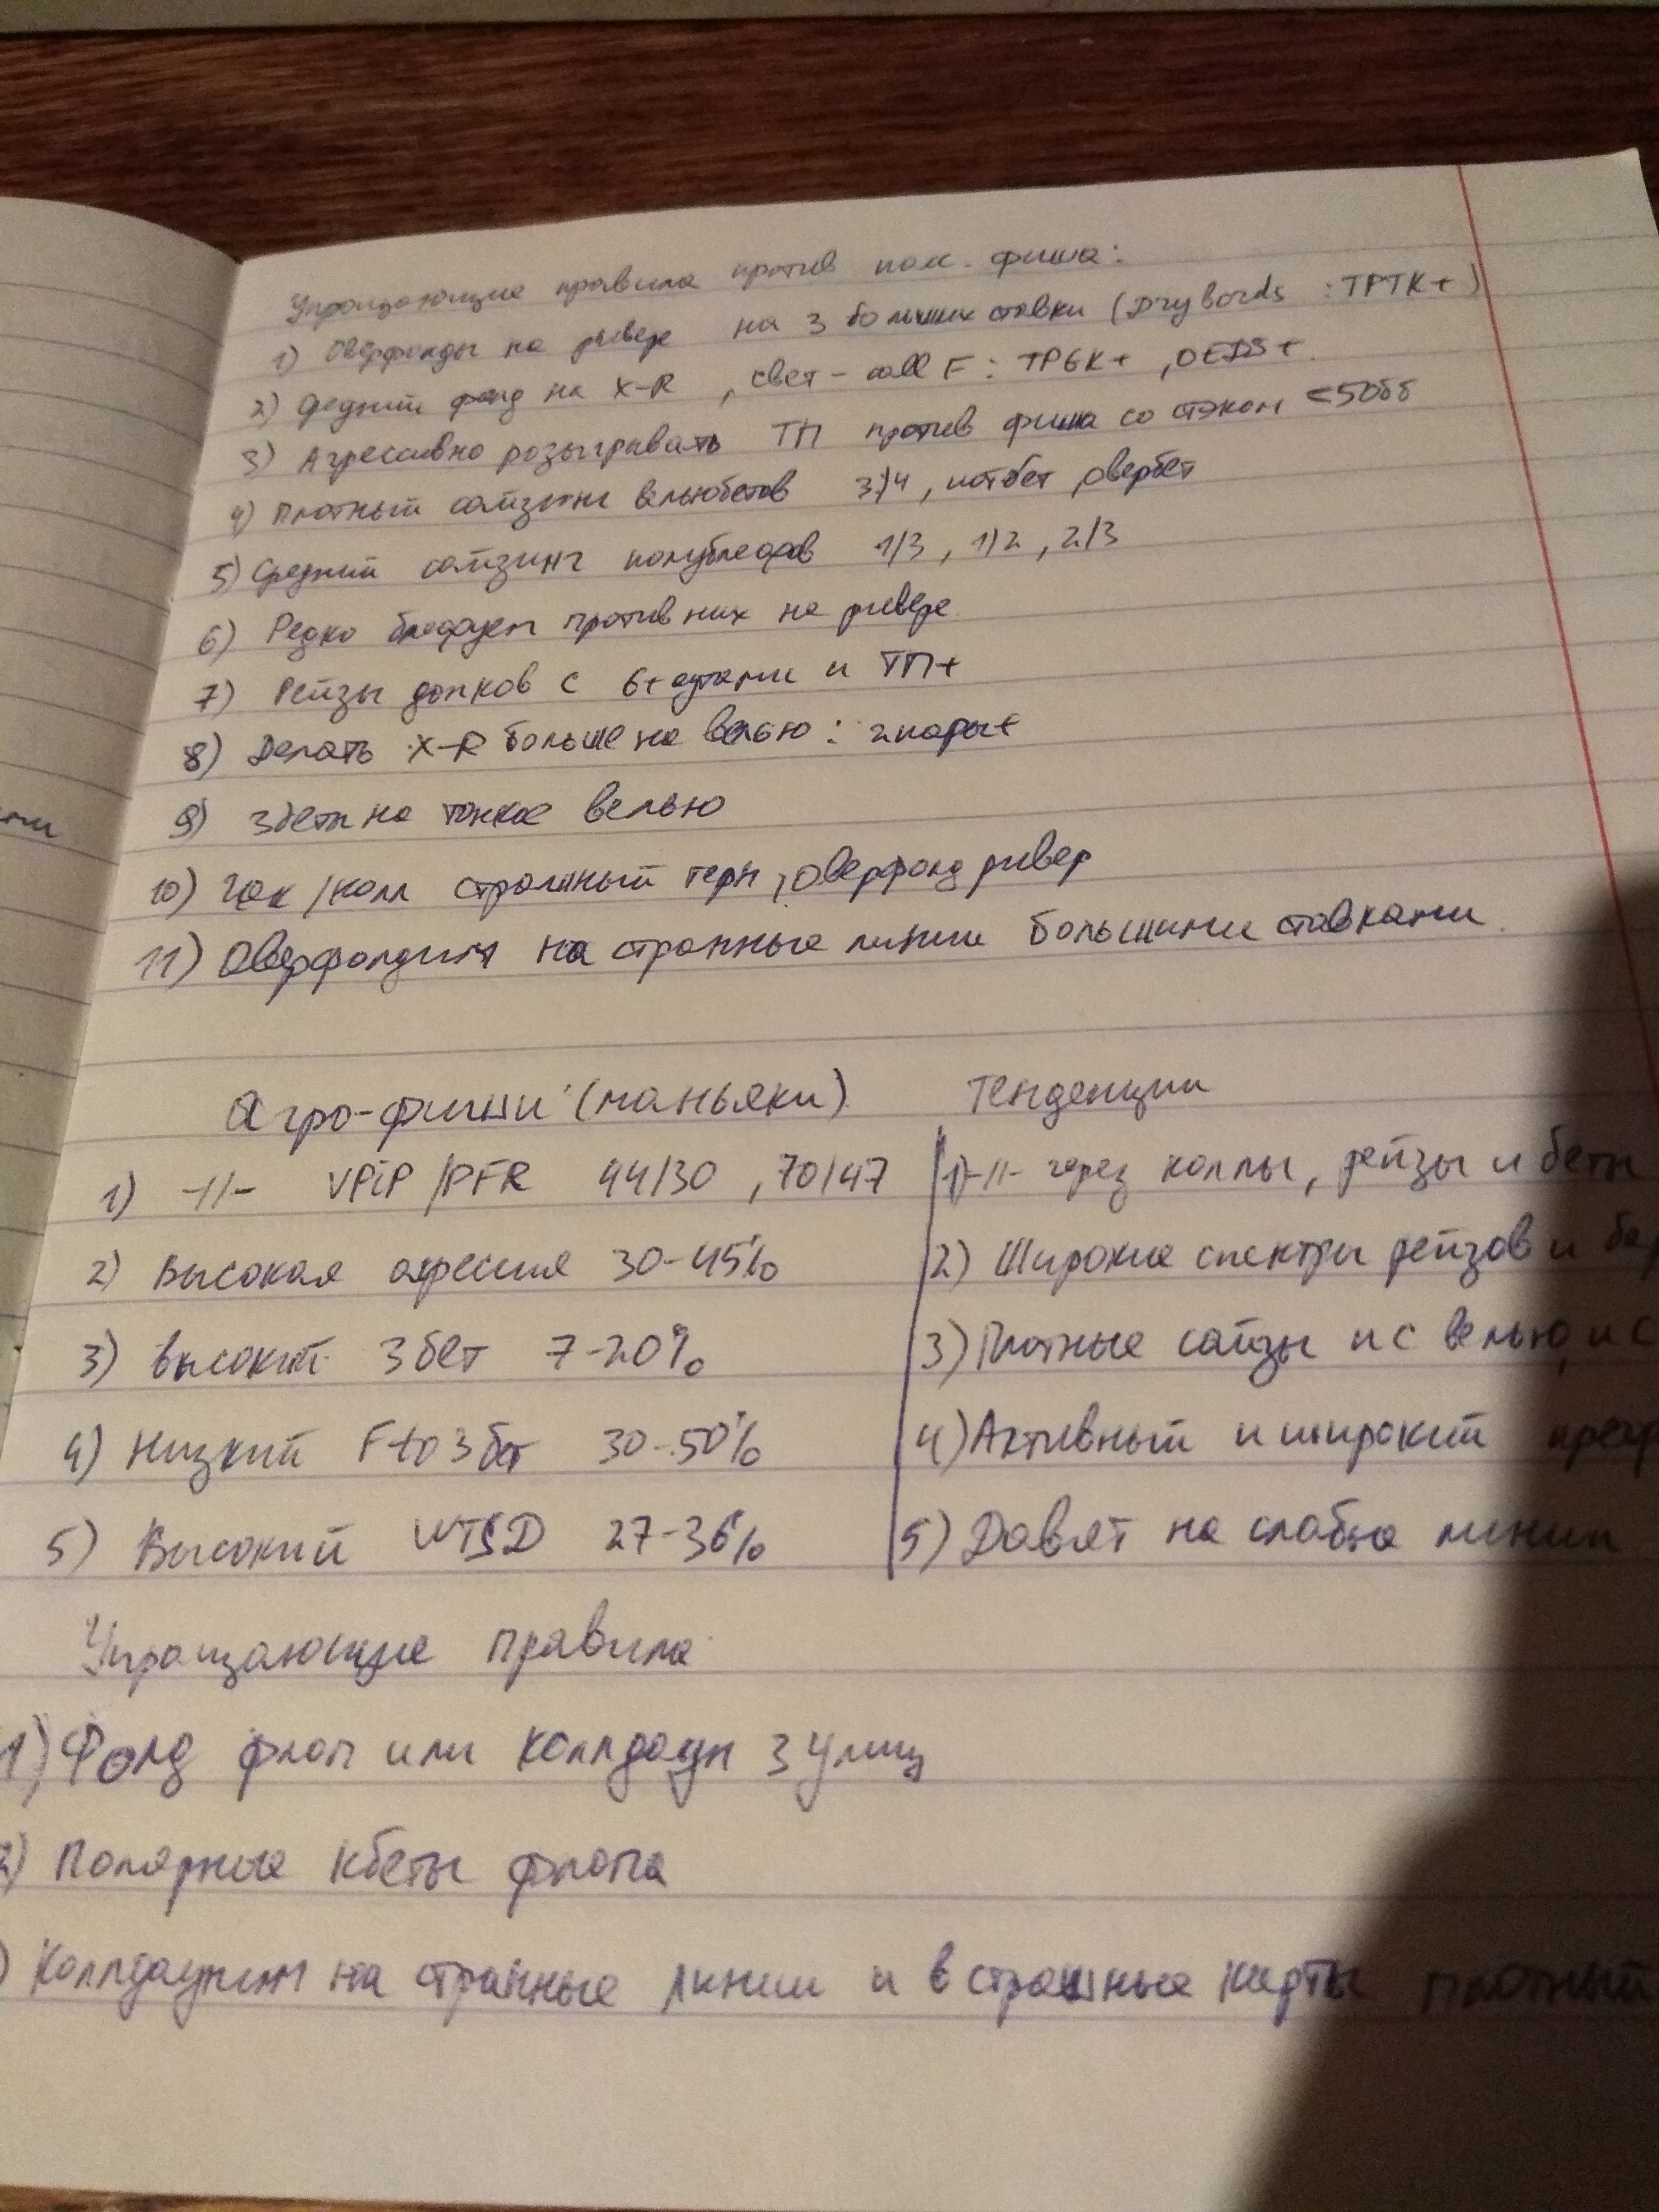 Упрощающие правила против пасс. фиша:
1) Оверфолды на ривере на 3 больших ставки (Dry bords : TPTK+)
2) Средний фолд на X-R , свет - call F : TPGK+ , OESD+.
3) Агрессивно разыгрывать ТП против фиша со стэком <50бб
4) Плотный сайзинг вельюбетов 3/4, потбет, овербет
5) Средний сайзинг полублефов 1/3, 1/2, 2/3
6) Редко блефуем против них на ривере
7) Рейзы донков с 6+ аутами и ТП+
8) Делать X-R больше на велью: 2 пары+
9) 3беты на тонкое велью
10) Чек/колл страшный терн, оверфолд ривер
11) Оверфолдим на странные линии большими ставками.
Агро-фиши (маньяки) Тенденции
1) -//- VPiP/PFR 44/30 , 70/47 1) -//- через коллы, рейзы и беты
2) Высокая агрессия 30-45% 2) Широкие спектры рейзов и
3) Высокий 3бет 7-20% 3) Плотные сайзы и с велью, и с
4) Низкий F to 3бет 30-50% 4) Активный и широкий
5) Высокий WTSD 27-36% 5) Давят на слабые линии
Упрощающие правила
1) Фолд флоп или коллдаун 3 улиц
2) Полярные кбеты флопа
) Коллдауним на странные линии и в страшные карты плотный